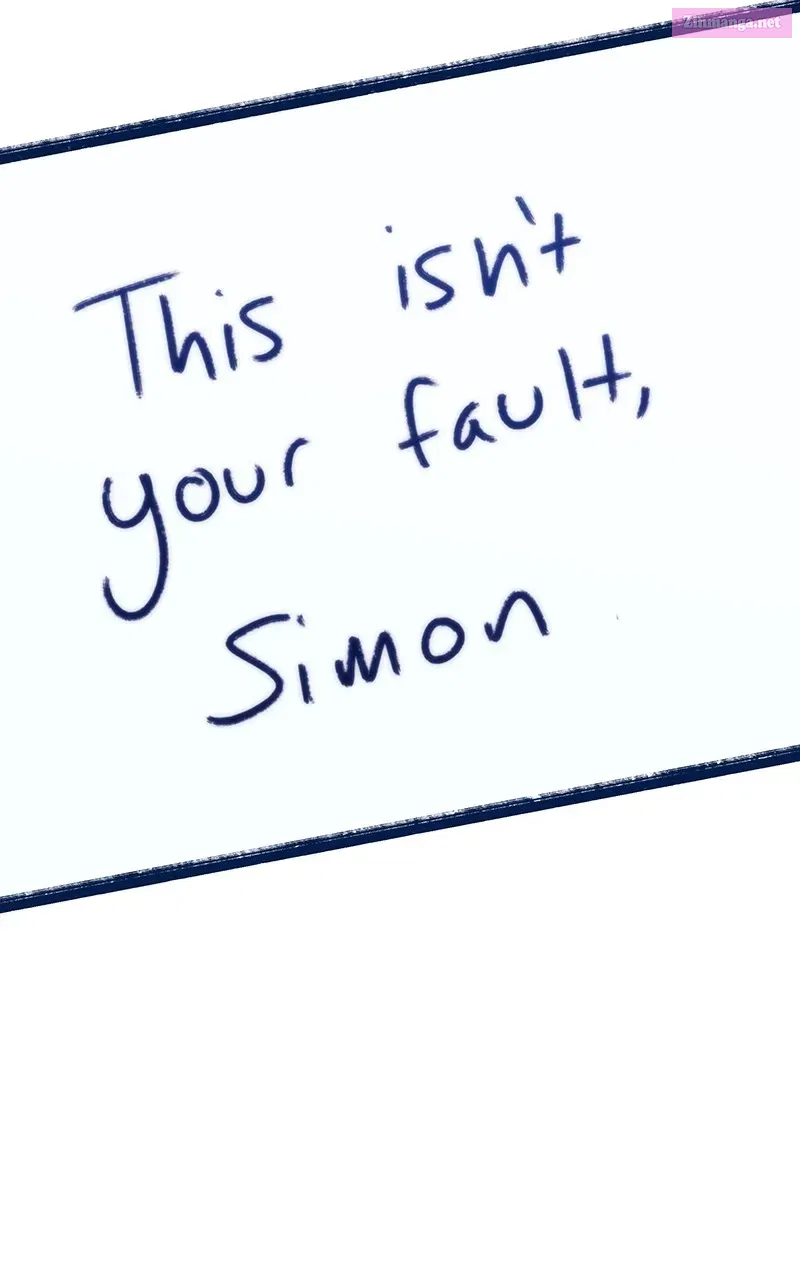 Zinmanga.net
This isn't
your fault,
Simon